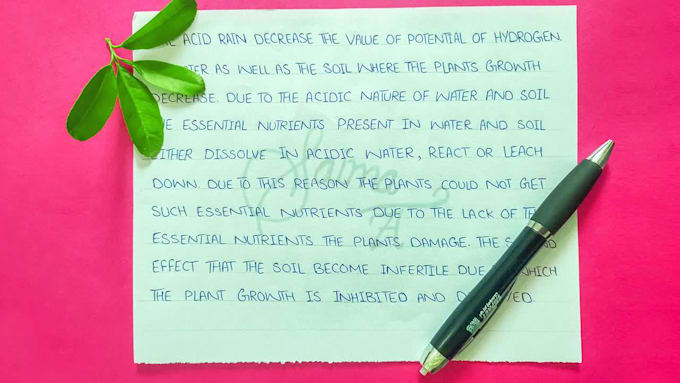 ACID RAIN DECREASE THE VALUE OF POTENTIAL OF HYDROGEN.
AS WELL AS THE SOIL WHERE THE PLANTS GROWTH
DECREASE. DUE TO THE ACIDIC NATURE OF WATER AND SOIL
ESSENTIAL NUTRIENTS PRESENT IN WATER AND SOIL
EITHER DISSOLVE IN ACIDIC WATER, REACT OR LEACH
DOWN. DUE TO THIS REASON THE PLANTS COULD NOT GET
SUCH ESSENTIAL NUTRIENTS DUE TO THE LACK OF
ESSENTIAL NUTRIENTS THE PLANTS DAMAGE. THE
EFFECT THAT THE SOIL BECOME INFERTILE DUE WHICH
THE PLANT GROWTH IS INHIBITED AND